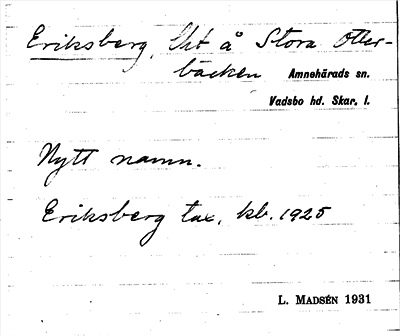 Eriksberg, lht å Stora Otter-
bäcken Amnehärads sn.
Vadsbo hd. Skar. l.
Nytt namn.
Eriksberg tax. kb. 1925
L. MADSÉN 1931